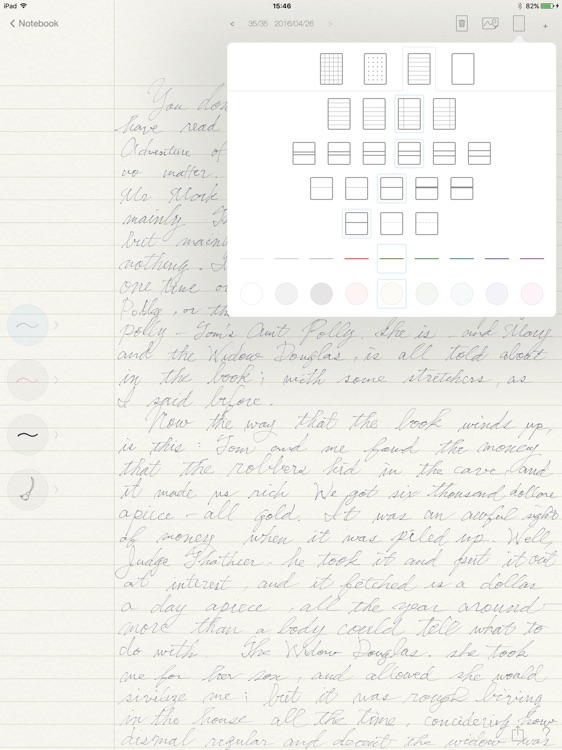 iPad 15:46 82%
Notebook < 35/35 2016/04/26 >
You don
have read
Adventure of
no matter.
Mr Mark
mainly
but mainl
nothing. I
one time or
Polly, or th
polly - Tom's Aunt Polly. she is and Mary
and the Widow Douglas, is all told about
in the book; with some stretchers, as
I said before.
Now the way that the book winds up,
is this: Tom and me found the money
that the robbers hid in the cave and
it made us rich We got six thousand dollars
apiece - all gold. It was an awful sight
of money when it was piled up. Well,
Judge Thatcher, he took it and put it out
at interest, and it fetched us a dollar
a day apiece, all the year around
more than a body could tell what to
do with. The Widow Douglas. she took
me for her son, and allowed she would
sivilize me; but it was rough living
in the house all the time, considering how
dismal regular and decent the widow was